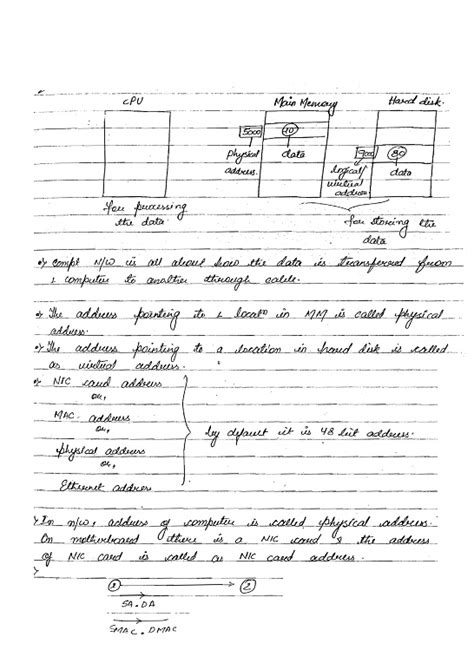 CPU Main Memory Hard disk.
5000 40
Physical address. data
9000 80
logical/ virtual address data
for processing the data
for storing the data
Compt N/W is all about how the data is transferred from
1 computer to another through cable.
The address pointing to 1 locatn in MM is called physical
address.
The address pointing to a location in hard disk is called
as virtual address.
NIC card address
or,
MAC address
or,
physical address
or,
Ethernet address
by default it is 48 bit address.
In n/w, address of computer is called physical address.
On motherboard there is a NIC card & the address
of NIC card is called as NIC card address.
1 2
SA. DA
SMAC. DMAC